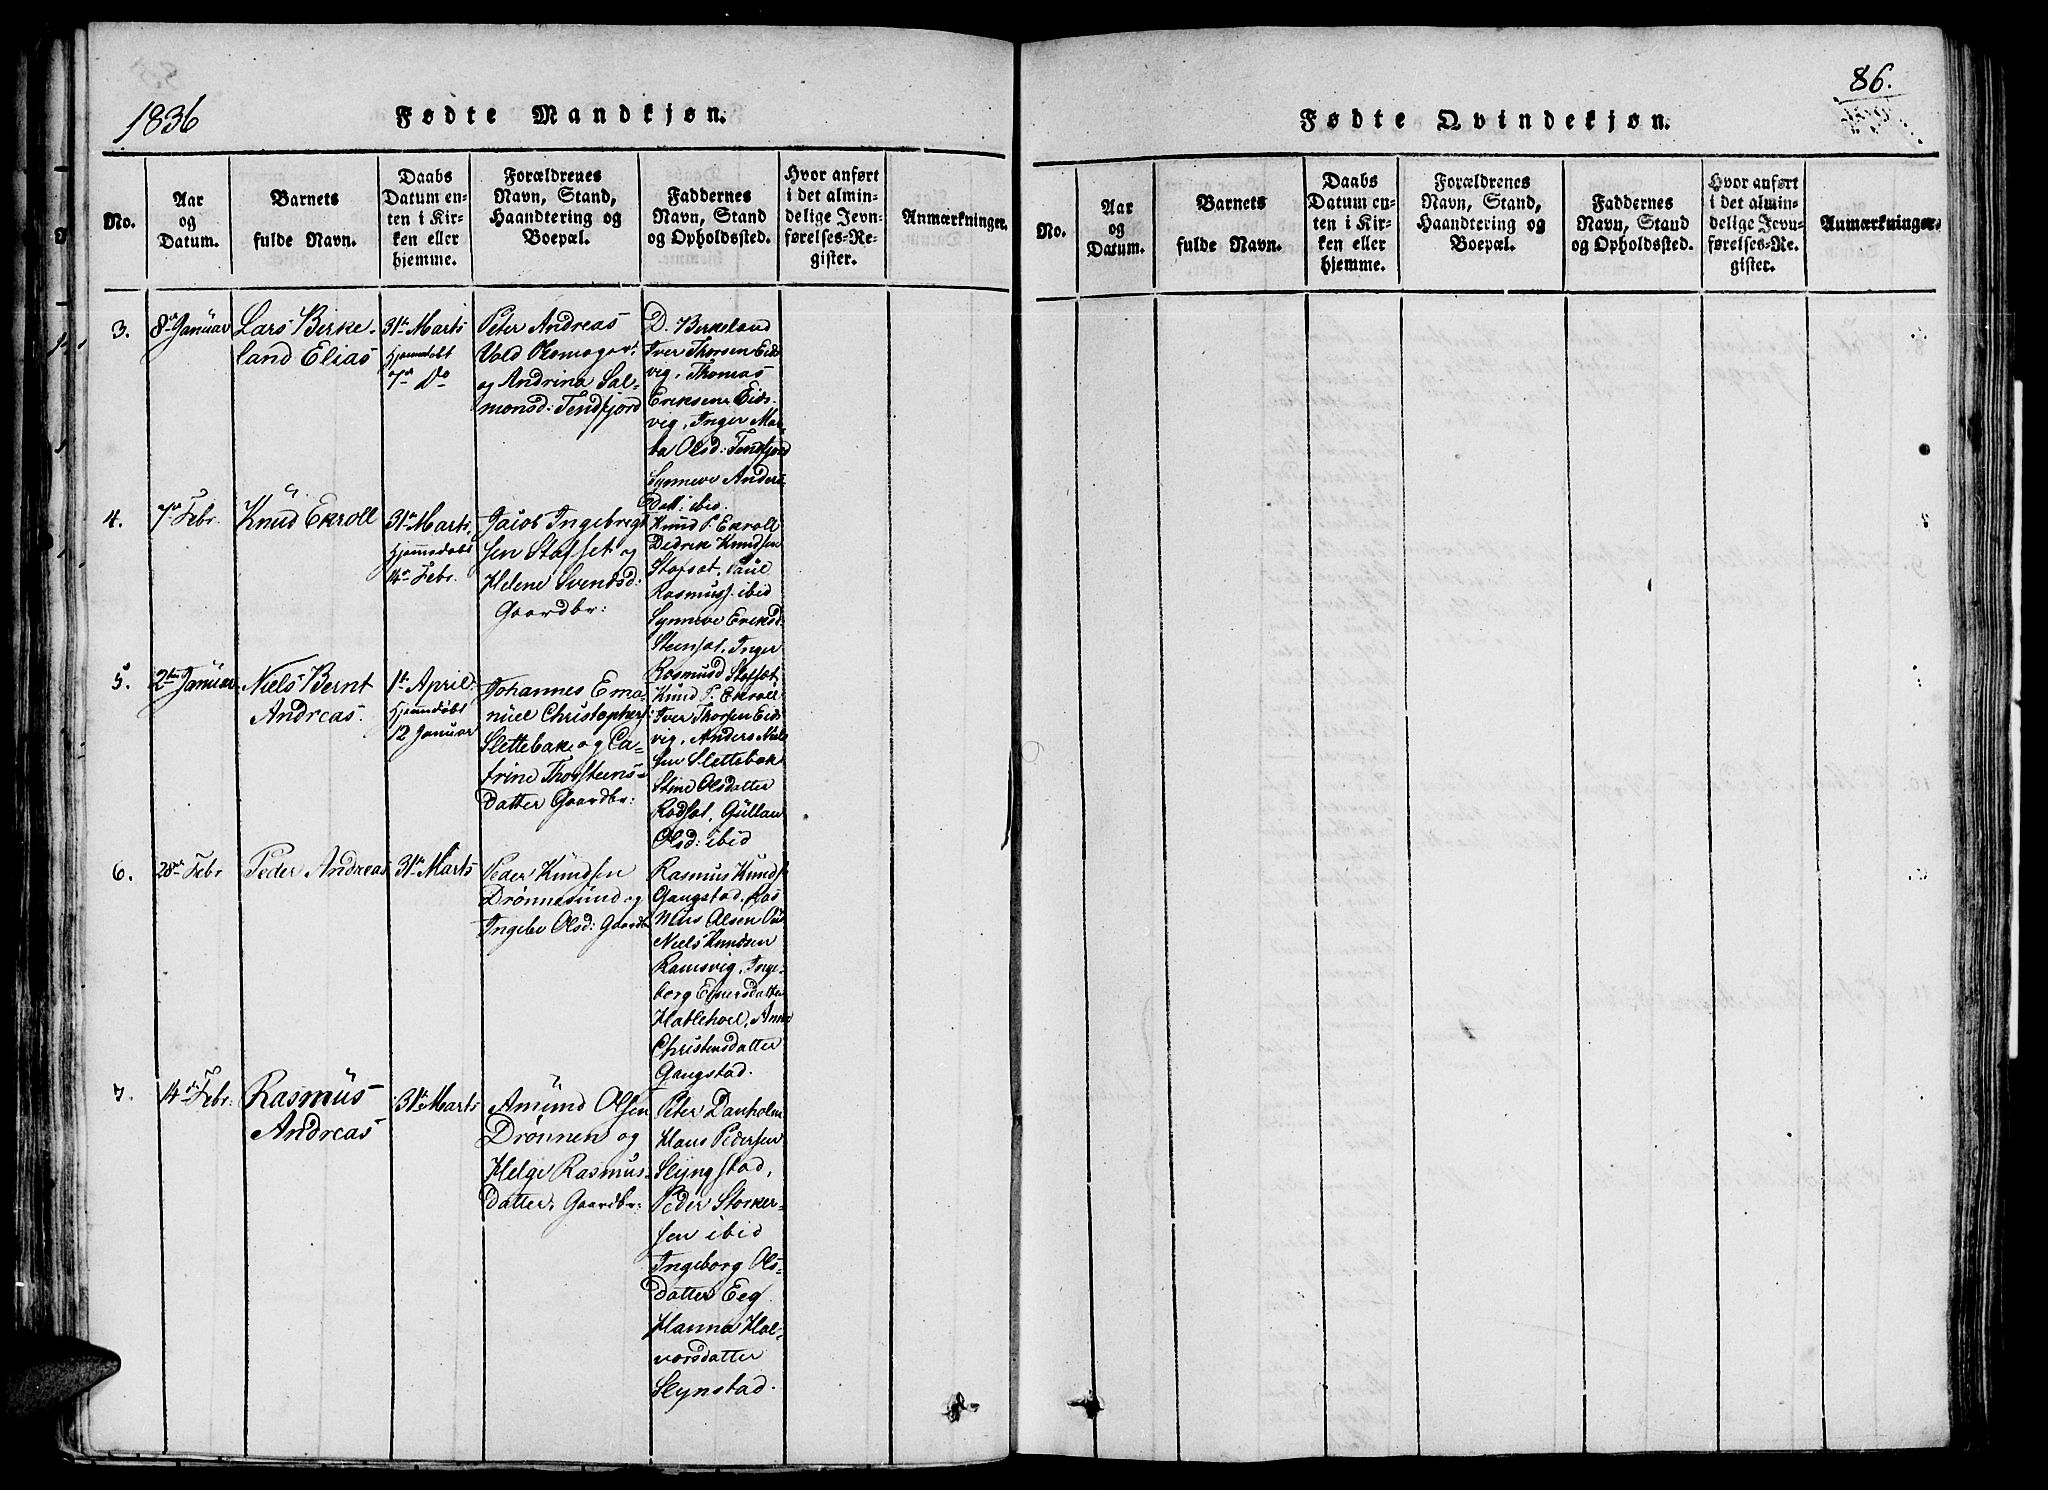 1836
Fødte Mandkjøn.
No.
Aar
og
Datum.
Barnets
fulde Navn.
Daabs
Datum en-
ten i Kir-
ken eller
hjemme.
Forældrenes
Navn, Stand,
Haandtering og
Boepæl.
Faddernes
Navn, Stand
og Opholdssted.
Hvor anført
i det almin-
delige Jevn-
førelses-Re-
gister.
Anmærkninger.
3.
8de Januar
Lars Birke-
land Elias
31te Marts
Hjemmedøbt
7de Do
Peter Andreas
Vold
og Andrina Sal-
monsd: Tendfjord
D. Birkeland
Iver Thorsen Eids
vig, Thomas
Eriksen Eids-
vig, Inger Mar-
ta Olsd: Tendfjord
Synneve Anders
Datt: ibid.
4.
7de Febr.
Knud Ekroll
31te Marts
Hjemmedøbt
14de Febr.
Jacob Ingebregt
sen Stafset og
Helene Svendsd:
Gaardbr:
Knud P. Ekroll
Didrik Knudsen
Stafset, Paul
Rasmuss. ibid
Synneve Eriksd:
Steensæt, Inger
Rasmusd Stafset
5.
2den Januar
Niels Bernt
Andreas.
1te April
Hjemmedøbt
12 Januar
Johannes Ema-
nuel Christophers:
Slettebak og Ca-
trine Thorsteens-
datter Gaardbr:
Knud P. Ekroll
Iver Thorsen Eids
vig, Anders Niel
sen Slettebak
Stine Olsdatter
Rodset, Gullau
Olsd: ibid
6.
28de Febr
Peder Andreas
31te Marts
Peder Knudsen
Drønnesund og
Ingebor Olsd: Gaardb
Rasmus Knuds
Gangstad, Ras
mus Olsen
Niels Knudsen
Ramsvig, Inge-
borg Einersdatter
Hablehoel, Anne
Christensdatter
Gangstad.
7.
14de Febr:
Rasmus
Andreas
31te Marts
Amund Olsen
Drønnen og
Helge Rasmus-
datter, Gaardbr:
Peter Danholm
Hans Pedersen
Slyngstad,
Peder Storker-
sen ibid
Ingeborg Ols-
datter Eeg
Hanna Hal-
vorsdatter
Slynstad.
86.
Fødte Qvindekjøn.
No.
Aar
og
Datum.
Barnets
fulde Navn.
Daabs
Datum en-
ten i Kir-
ken eller
hjemme.
Forældrenes
Navn, Stand,
Haandtering og
Boepæl.
Faddernes
Navn, Stand
og Opholdssted.
Hvor anført
i det almin-
delige Jevn-
førelses-Re-
gister.
Anmærkninger.